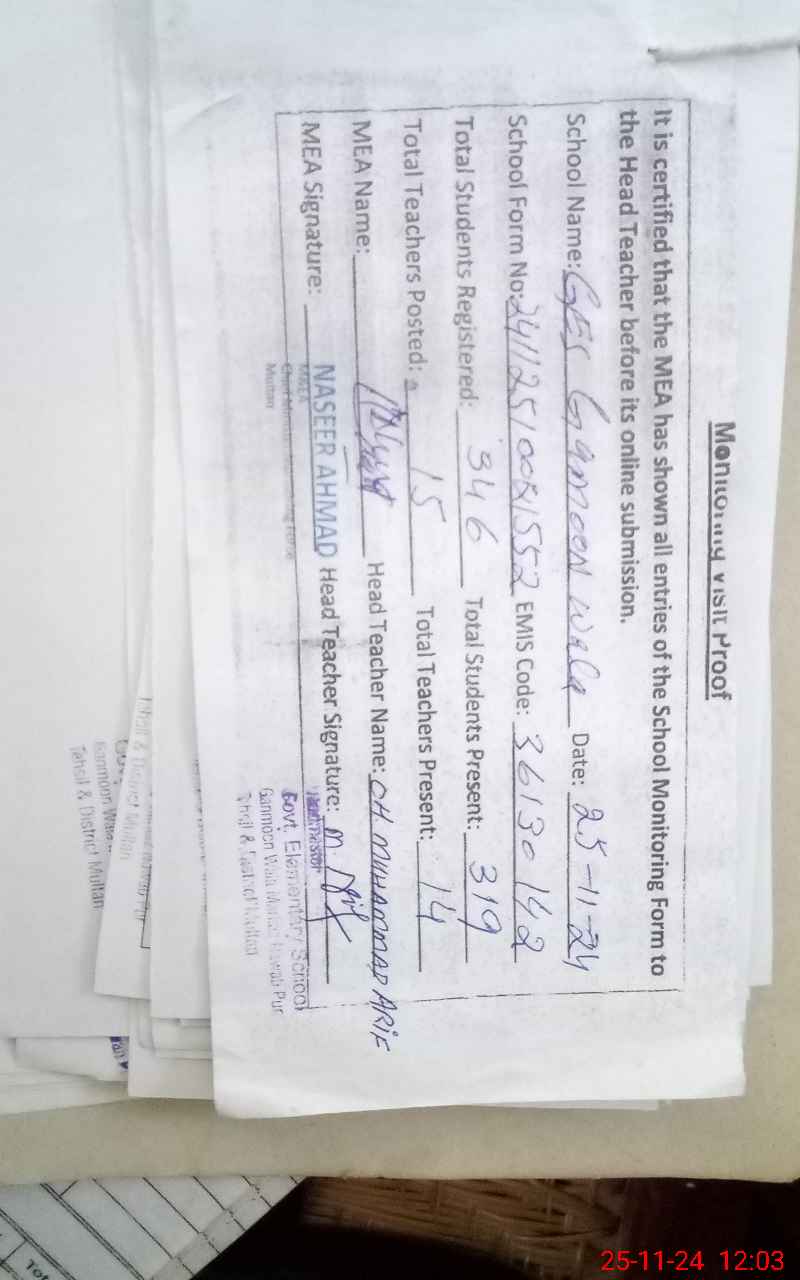 Monitoring Visit Proof
It is certified that the MEA has shown all entries of the School Monitoring Form to
the Head Teacher before its online submission.
School Name: GES Gamoon Wala Date: 25-11-24
School Form No: EMIS Code: 36130142
Total Students Registered: 346 Total Students Present: 319
Total Teachers Posted: 15 Total Teachers Present: 14
MEA Name: Head Teacher Name: CH. MUHAMMAD ARIF
MEA Signature: NASEER AHMAD Head Teacher Signature: M. Arif
M&EA
Multan
Headmaster
Govt. Elementary School
Ganmoon Wala Nawab Pur
Tehsil & District Multan
Tehsil & District Multan
Ganmoon Wala
Tehsil & District Multan
25-11-24 12:03